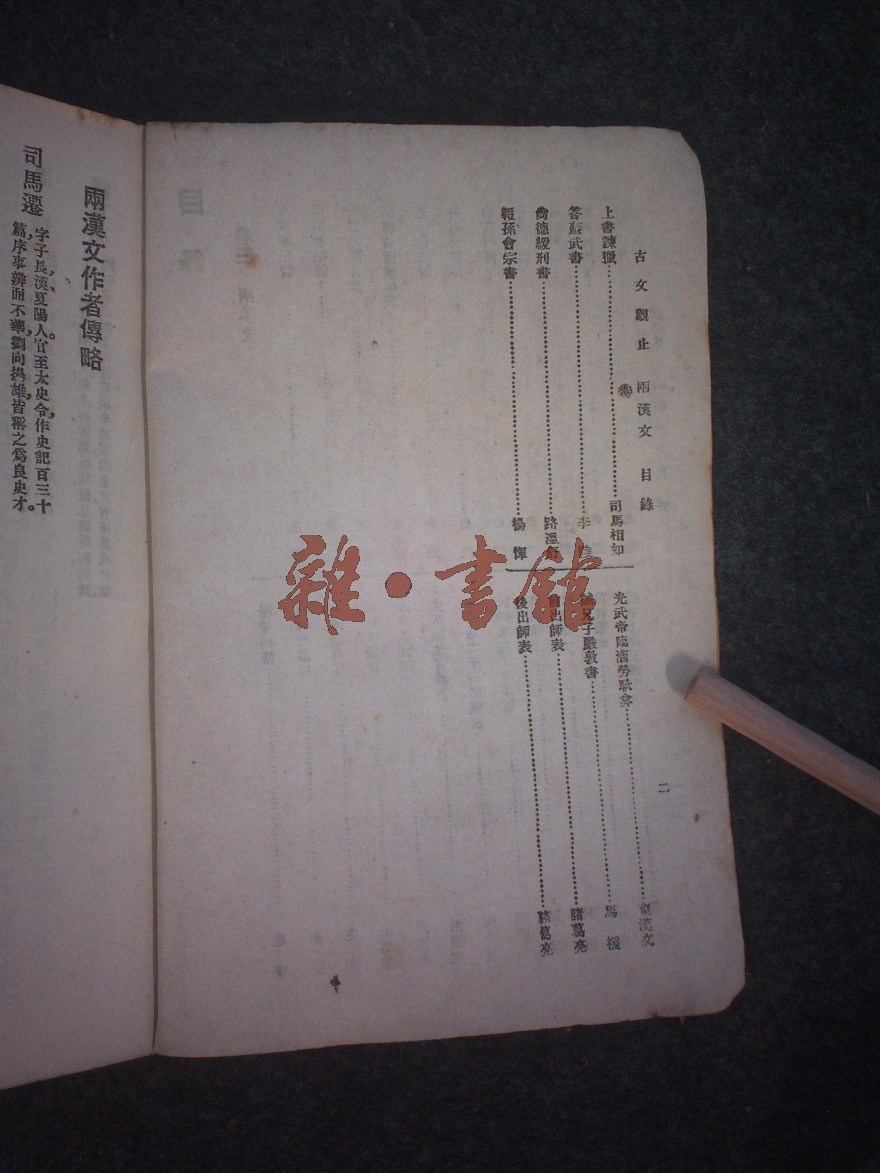 古文觀止 兩漢文 目錄
上書諫獵……司馬相如
答蘇武書……李
尙德緩刑書……路溫舒
報孫會宗書……楊惲
光武帝臨淄勞耿弇……東漢文
兄子嚴敦書……馬援
出師表……諸葛亮
後出師表……諸葛亮
二
兩漢文作者傳略
司馬遷
字子長，漢夏陽人。官至太史令，作史記百三十
篇，序事辨而不華，劉向揚雄皆稱之爲良史才。
雜·書館